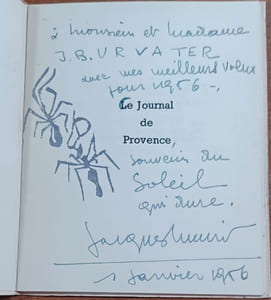 à Monsieur et Madame
J.B. URVATER
avec mes meilleurs vœux
pour 1956 -.
Le Journal
de
Provence,
souvenir du
Soleil
qui dure.
1 Janvier 1956